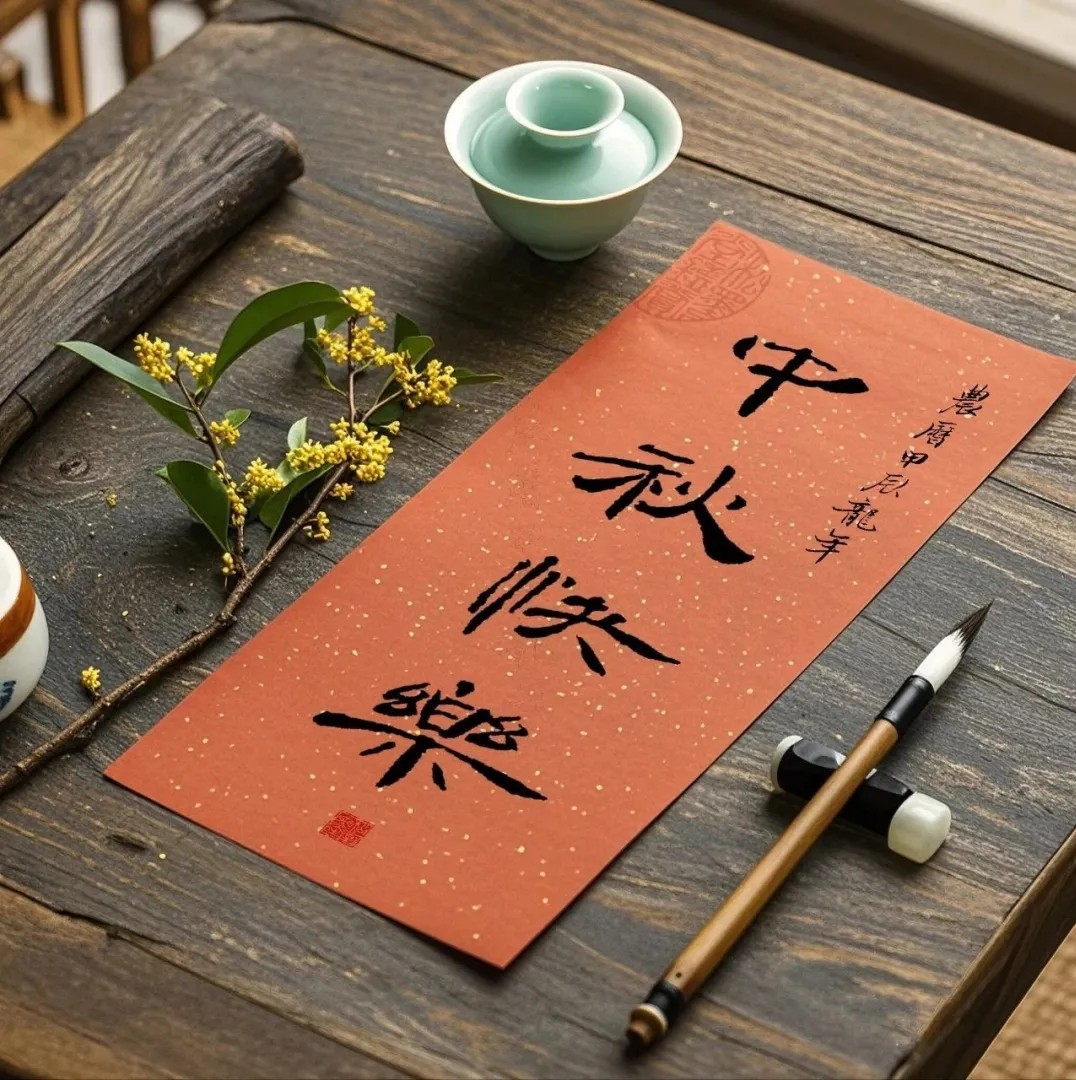 農曆甲辰龍年
中秋快樂